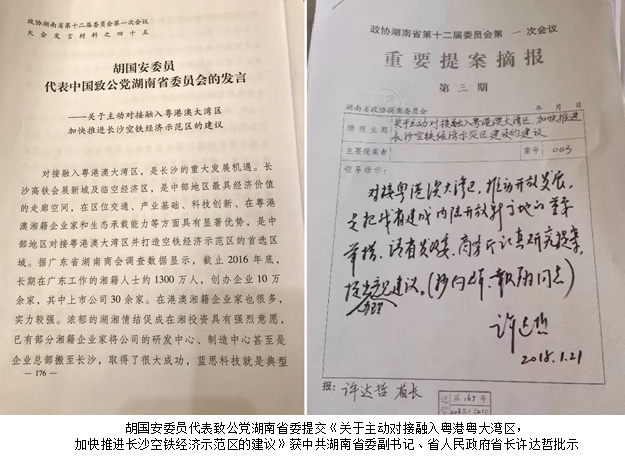 政协湖南省第十二届委员会第一次会议
大会发言材料之四十五
胡国安委员
代表中国致公党湖南省委员会的发言
——关于主动对接融入粤港澳大湾区
加快推进长沙空铁经济示范区的建议
对接融入粤港澳大湾区，是长沙的重大发展机遇。长
沙高铁会展新城及临空经济区，是中部地区最具经济价值
的走廊空间，在区位交通、产业基础、科技创新、在粤港
澳湘籍企业家和生态承载能力等方面具有显著优势，是中
部地区对接粤港澳大湾区并打造空铁经济示范区的首选区
域。据广东省湖南商会调查数据显示，截止 2016 年底，
长期在广东工作的湘籍人士约 1300 万人，创办企业 10 万
余家，其中上市公司 30 余家。在港澳湘籍企业家也很多，
实力较强。浓郁的湖湘情结促成在湘投资具有强烈意愿，
已有部分湘籍企业家将公司的研发中心、制造中心甚至是
企业总部搬至长沙，取得了很大成功，蓝思科技就是典型
— 176 —
政协湖南省第十二届委员会第一次会议
重要提案摘报
第三期
湖南省政协提案委员会 年 月 日
提报主题 关于主动对接融入粤港澳大湾区、加快推进
长沙空铁经济示范区建设的建议
主要提案者 案号 003
领导指示：
对接粤港澳大湾区，推动开放发展，
是把我省建成内陆开放新高地的重要
举措，请省发改委、商务厅认真研究提案，
提出办理意见建议。(抄向群、同志)
许达哲
2018.1.21
报：许达哲 省长
第167号
胡国安委员代表致公党湖南省委提交《关于主动对接融入粤港粤大湾区，
加快推进长沙空铁经济示范区的建议》获中共湖南省委副书记、省人民政府省长许达哲批示